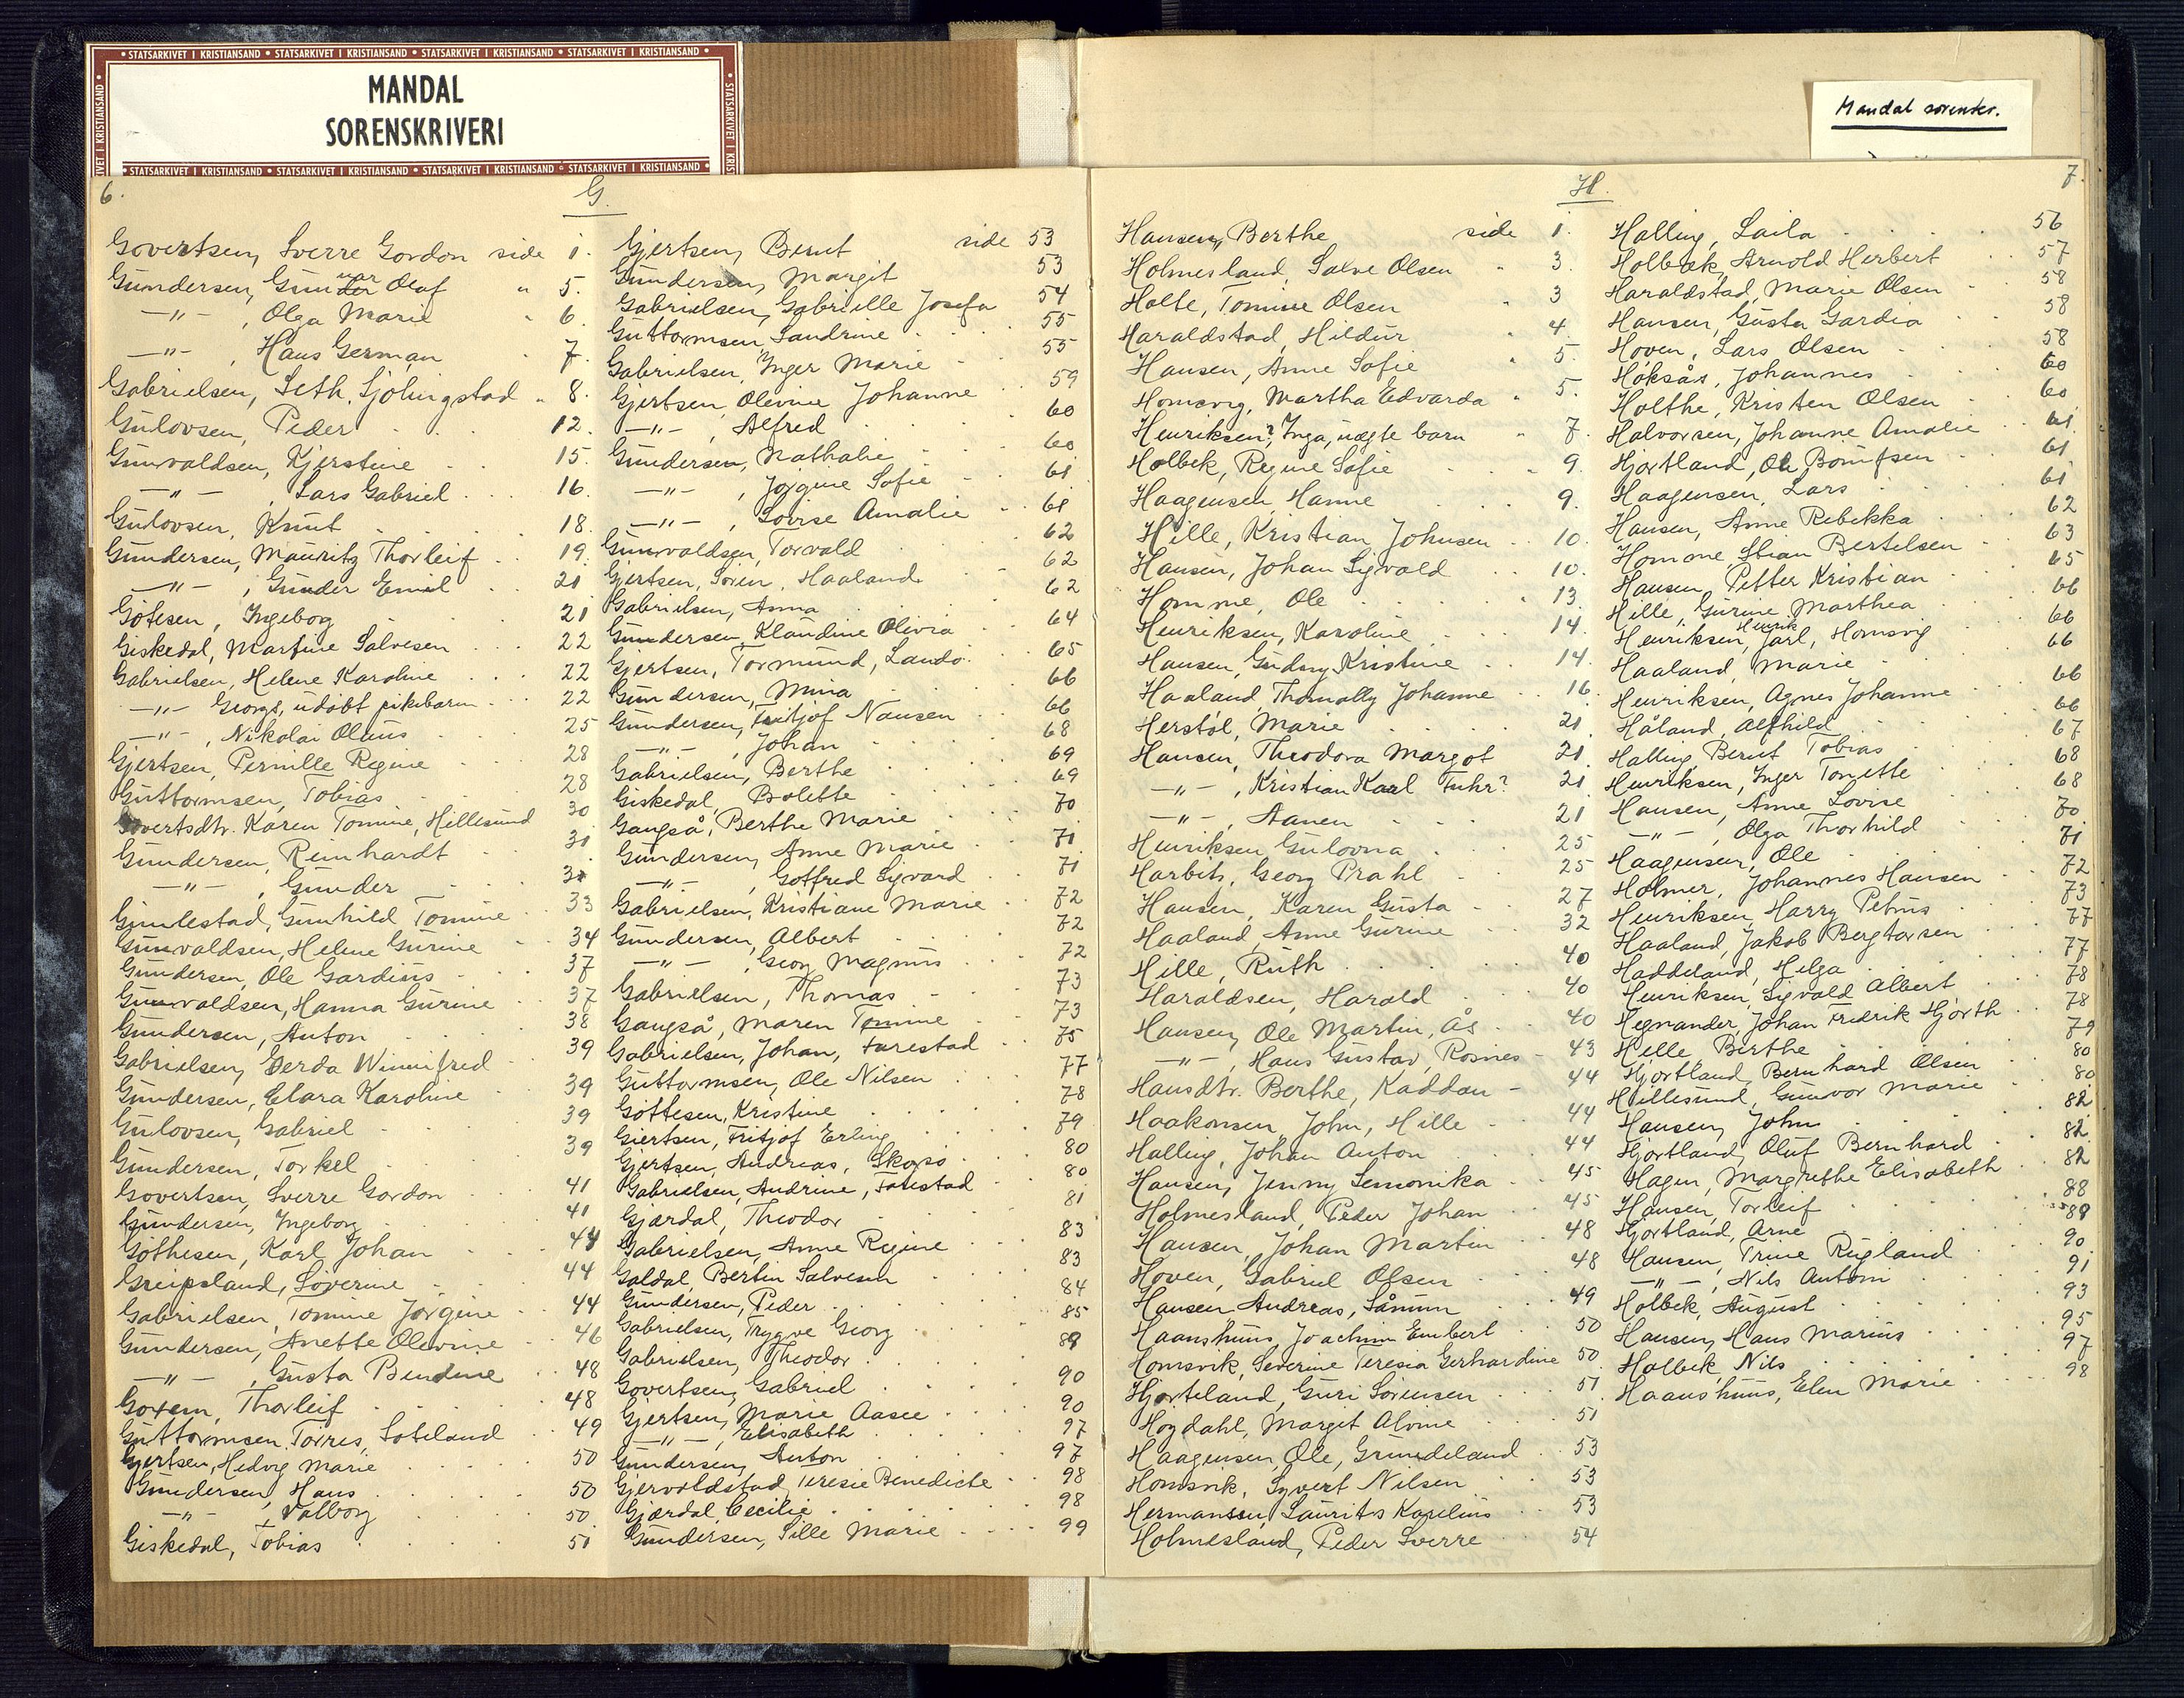 STATSARKIVET I KRISTIANSAND • STATSARKIVET I KRISTIANSAND • STATSARKIVET I KRISTIANSAND • STATSARKIVET I KRISTIANSAND
MANDAL
SORENSKRIVERI
STATSARKIVET I KRISTIANSAND • STATSARKIVET I KRISTIANSAND • STATSARKIVET I KRISTIANSAND • STATSARKIVET I KRISTIANSAND
Mandal sorenskr.
6.
G.
Govertsen, Sverre Gordon side 1.
Gundersen, Gunnar Olaf " 5.
—"— , Olga Marie " 6.
—"— , Hans German " 7.
Gabrielsen, Seth, Sjølingstad " 8.
Gulovsen, Peder 12.
Gunvaldsen, Kjerstine 15.
—"— , Lars Gabriel 16.
Gulovsen, Knut 18.
Gundersen, Mauritz Thorleif 19.
—"— , Gunder Emil 21
Gotesen, Ingeborg 21
Giskedal, Martine Salvesen 22
Gabrielsen, Helene Karoline 22
—"— Georgs, udøbt pikebarn 22
—"— , Nikolai Olaus 25
Gjertsen, Pernille Regine 28
Guttormsen, Tobias 28
Govertsdtr. Karen Tomine, Hillesund 30
Gundersen, Reinhardt 31
—"— , Gunder 31
Gumlestad, Gunhild Tomine 33
Gunvaldsen, Helene Gurine 34
Gundersen, Ole Gardius 37
Gunvaldsen, Hanna Gurine 37
Gundersen, Anton 38
Gabrielsen, Gerda Winnifred 39
Gundersen, Clara Karoline 39
Gulovsen, Gabriel 39
Gundersen, Torkel 39
Govertsen, Sverre Gordon 41
Gundersen, Ingeborg 41
Gothesen, Karl Johan 44
Greipsland, Severine 44
Gabrielsen, Tomine Jørgine 44
Gundersen, Anette Olevine 46
—"— , Gusta Bendine 48
Goxem, Thorleif 48
Guttormsen, Torres, Soteland 49
Gjertsen, Hedvig Marie 50
Gundersen, Hans 50
—"— , Valborg 50
Giskedal, Tobias 51
Gjertsen, Berut side 53
Gundersen, Margit 53
Gabrielsen, Gabrielle Josefa 54
Guttormsen, Sandrine 55
Gabrielsen, Inger Marie 55
Gjertsen, Olevine Johanne 59
—"— , Alfred 60
Gundersen, Nathalie 60
—"— , Jørgine Sofie 61
—"— , Lovise Amalie 61
Gunvaldsen, Torvald 62
Gjertsen, Søren, Haaland 62
Gabrielsen, Anna 62
Gundersen, Klaudine Olivia 64
Gjertsen, Tormund, Landø 65
Gundersen, Mina 66
Gundersen, Fritjof Nansen 66
—"— , Johan 68
Gabrielsen, Berthe 69
Giskedal, Bolette 69
Gangså, Berthe Marie 70
Gundersen, Anne Marie 71
—"— , Gotfred Sigvard 71
Gabrielsen, Kristiane Marie 72
Gundersen, Albert 72
—"— , Georg Magnus 72
Gabrielsen, Thomas 73
Gangså, Maren Tomine 73
Gabrielsen, Johan, Farestad 75
Guttormsen, Ole Nilsen 77
Gottesen, Kristine 78
Giertsen, Fritjof Erling 79
Gjertsen, Andreas, Skogsø 80
Gabrielsen, Andrine, Farestad 80
Gjærdal, Theodor 81
Gabrielsen, Anne Regine 83
Goldal, Bertin Salvesen 83
Gundersen, Peder 84
Gabrielsen, Trygve Georg 85
Gabrielsen, Theodor 89
Govertsen, Gabriel 90
Gjertsen, Marie Aasee 90
—"— , Elisabeth 97
Gundersen, Anton 97
Gjervoldstad, Teresie Benedicte 98
Gjærdal, Cecilie 98
Gundersen, Sille Marie 99
H.
7.
Hansen, Berthe side 1.
Holmesland, Salve Olsen " 3.
Holte, Tomine Olsen " 3
Haraldstad, Hildur " 4.
Hansen, Anne Sofie " 5.
Homsvig, Martha Edvarda " 5.
Henriksen?, Inga, uægte barn " 7.
Holbek, Regine Sofie 9.
Haagensen, Hanne 9.
Hille, Kristian Johnsen 10.
Hansen, Johan Sigvald 10.
Homme, Ole 13.
Henriksen, Karoline 14.
Hansen, Gudny Kristine 14.
Haaland, Thomally Johanne 16.
Herstøl, Marie 21
Hansen, Theodora Margot 21.
—"— , Kristian Karl Fuhr? 21
—"— , Aanen 21
Henriksen, Gulovna 25
Harbits, Georg Prahl 25
Hansen, Karen Gusta 27
Haaland, Anne Gurine 32
Hille, Ruth 40
Haraldsen, Harald 40
Hansen, Ole Martin, Ås 40
—"— , Hans Gustav, Rosnes 43
Hansdtr. Berthe, Kaddan 44
Haakonsen, John, Hille 44
Halling, Johan Anton 44
Hansen, Jenny Semonika 45
Holmesland, Peder Johan 45
Hansen, Johan Martin 48
Hoven, Gabriel Olsen 48
Hansen Andreas, Sånum 49
Haanshuus, Joachim Embert 50
Homsvik, Severine Teresia Gerhardine 50
Hjorteland, Guri Sørensen 51
Hogdahl, Margit Alvine 51
Haagensen, Ole, Grundeland 53
Homsvik, Syvert Nilsen 53
Hermansen, Laurits Kornelius 53
Holmesland, Peder Sverre 54
Halling, Laila 56
Holbæk, Arnold Herbert 57
Haraldstad, Marie Olsen 58
Hansen, Gusta Gardia 58
Hoven, Lars Olsen 58
Høksås, Johannes 60
Holthe, Kristen Olsen 60
Halvorsen, Johanne Amalie 61
Hjortland, Ole Bomfsen 61
Haagensen, Lars 61
Hansen, Anne Rebekka 62
Homme, Stian Bertelsen 63
Hansen, Petter Kristian 65
Hille, Gurine Marthea 66
Henriksen, Henrik Jarl, Homsvig 66
Haaland, Marie 66
Henriksen, Agnes Johanne 66
Håland, Alfhild 66
Halling, Berut Tobias 67
Henriksen, Inger Tonette 68
Hansen, Anne Lovise 68
—"— , Olga Thorhild 70
Haagensen, Ole 71
Holmer, Johannes Hansen 72
Henriksen, Harry Petrus 73
Haaland, Jakob Bergtorsen 77
Haddeland, Helga 77
Henriksen, Sigvald Albert 78
Hegnander, Johan Fredrik Hjorth 78
Hille, Birthe 79
Hjortland, Bernhard Olsen 80
Hillesund, Gunvor Marie 80
Hansen, John 82
Hjortland, Oluf Bernhard 82
Hagen, Margrethe Elisabeth 82
Hansen, Torleif 88
Hjortland, Arne 89
Hansen, Trine Rugland 90
—"— , Nils Antoni 91
Holbek, August 93
Hansen, Hans Marius 95
Holbek, Nils 97
Haanshuus, Elen Marie 98